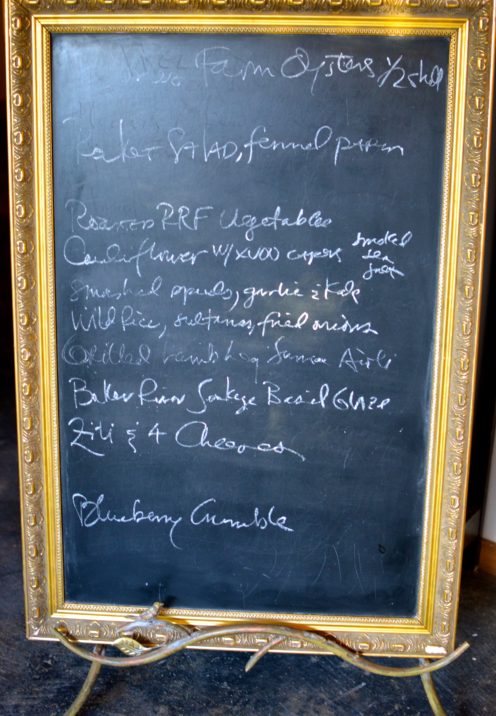 Farm Oysters 1/2 shell
Salad, fennel parm
Roasted RRF Vegetables
Cauliflower w/ XVOO capers smoked sea salt
Smashed spuds, garlic & Kale
Wild Rice, sultanas, fried onions
Grilled Lamb Leg
Baker River Basil Glaze
Ziti & 4 Cheeses
Blueberry Crumble